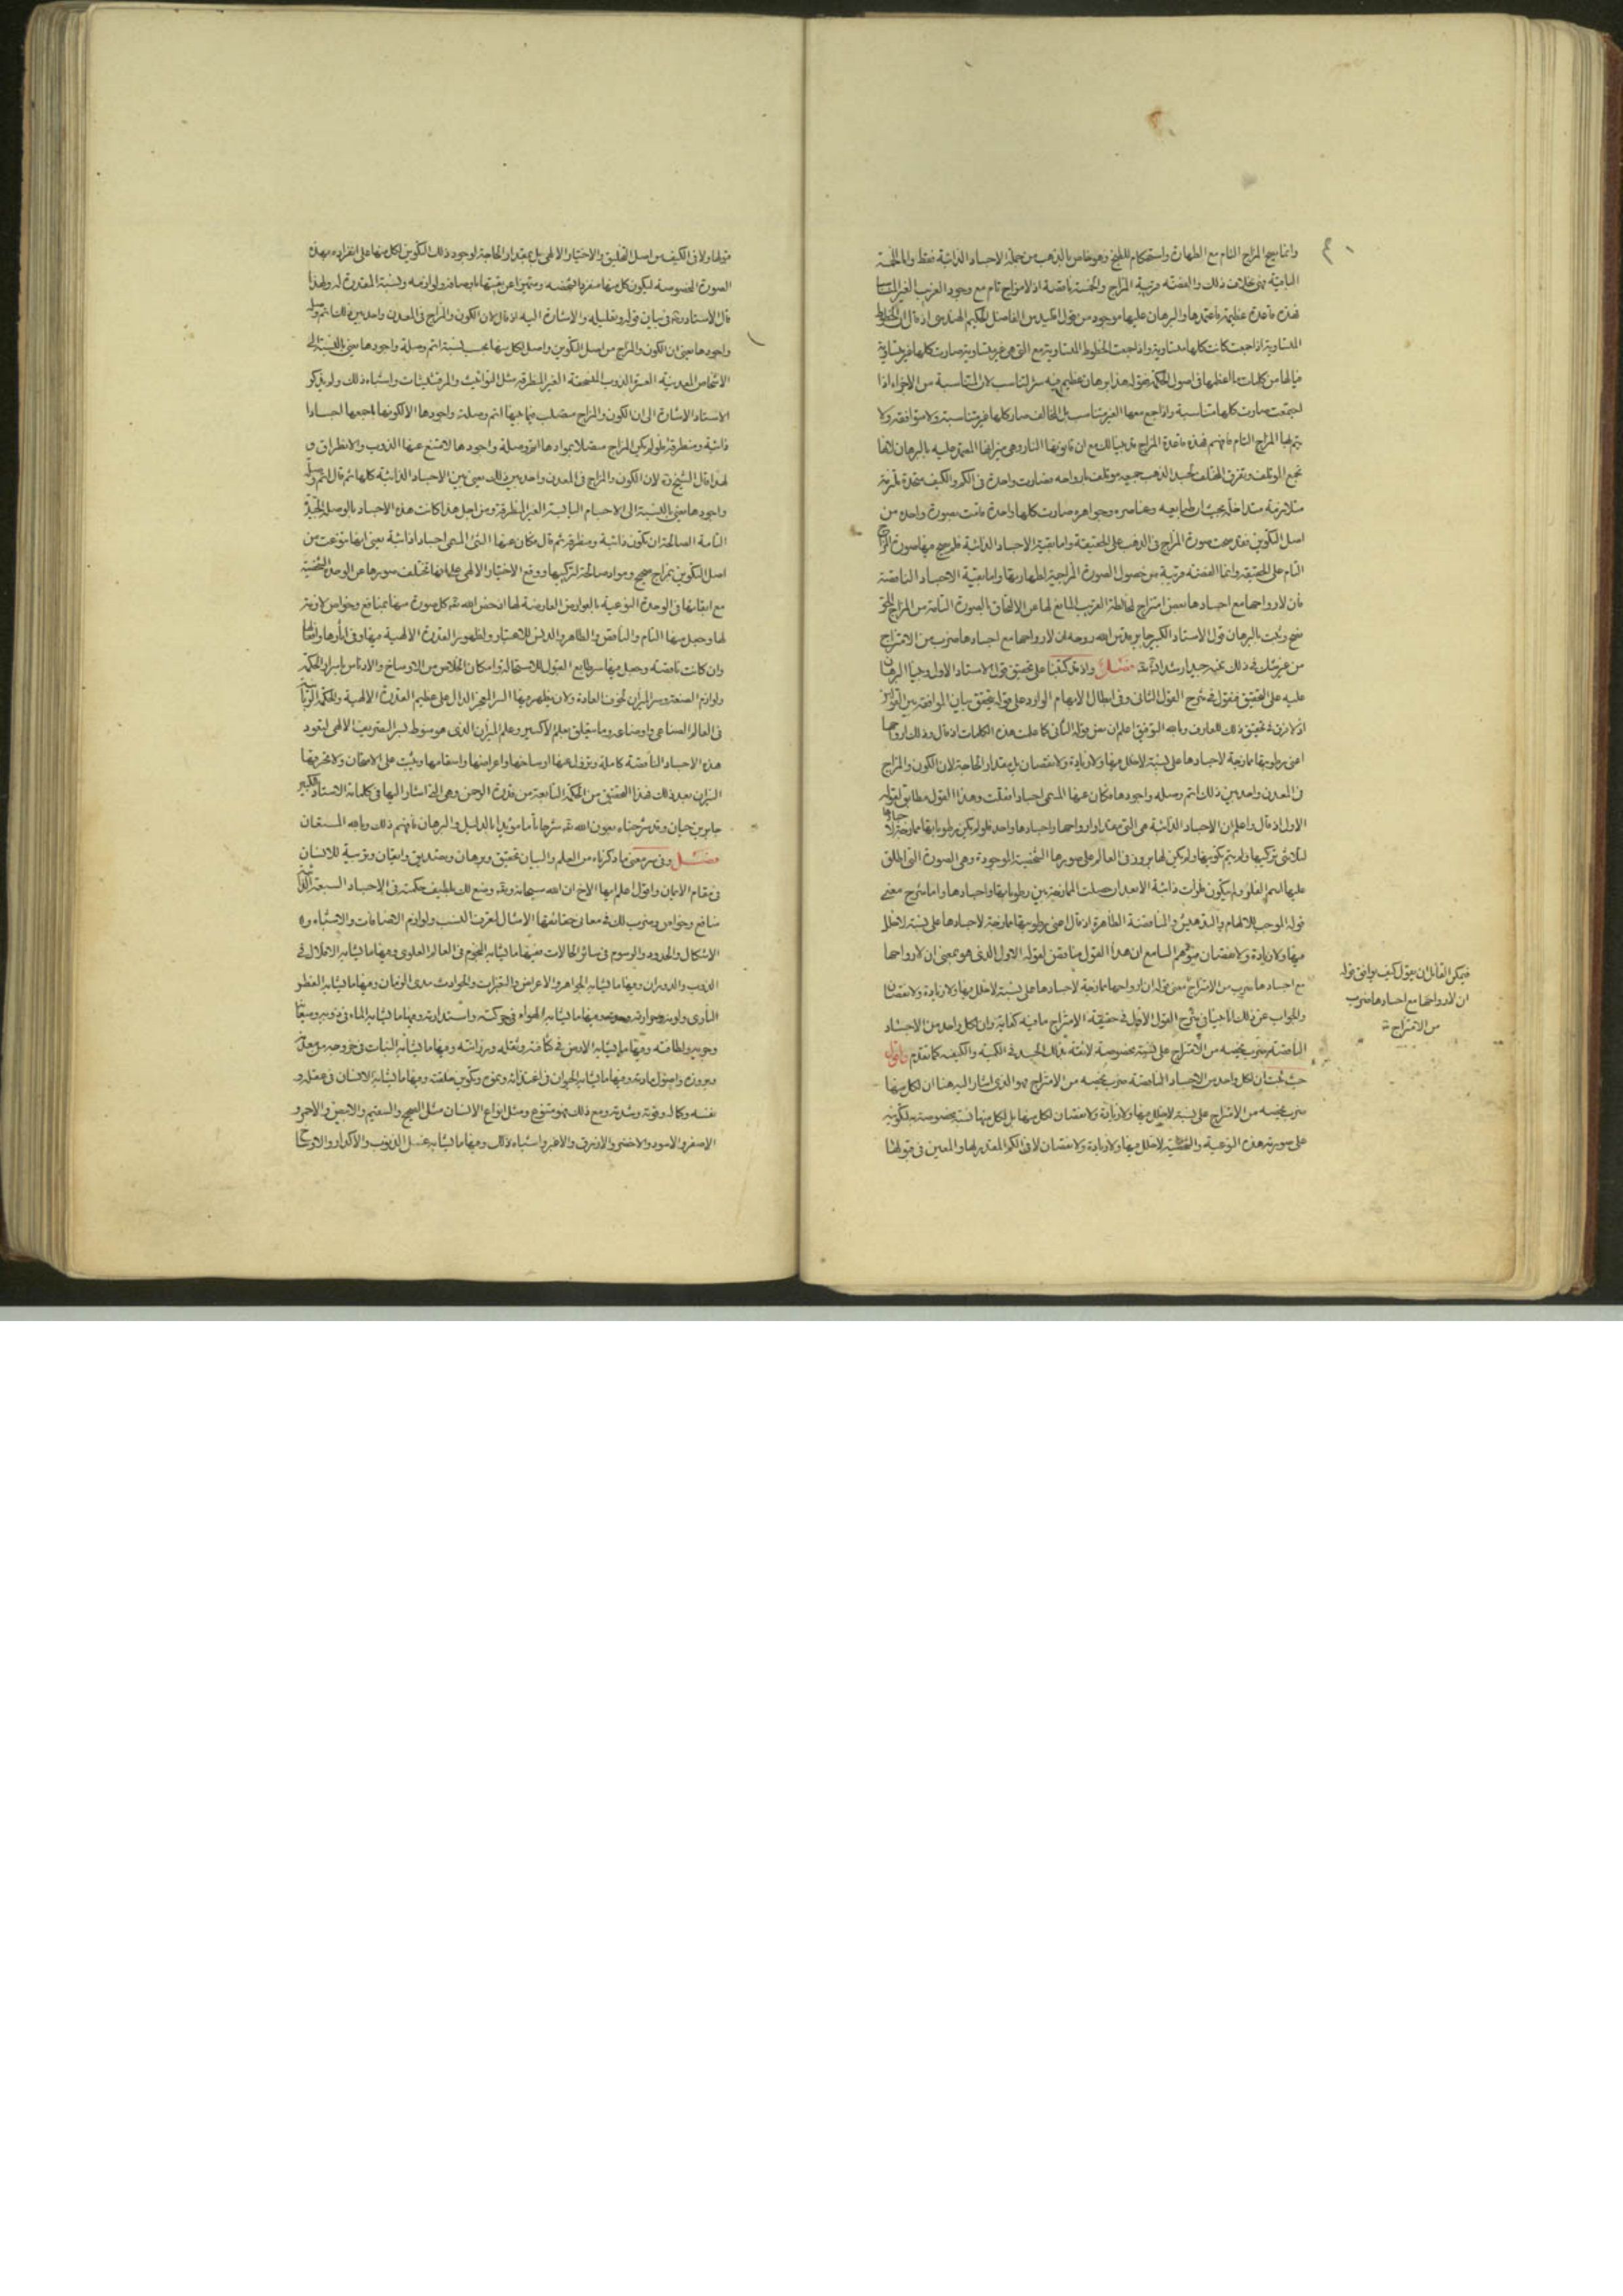 وانما صح المزاج التام مع الطهارة واستحكام الطبخ وهو خاص بالذهب من جملة الاجساد الذائبة فقط واما الخمسة
الباقية فهى بخلاف ذلك والفضة مرتبة المزاج والخمسة ناقصة اذ لا مزاج تام مع وجود الغريب الغير
فهذه قاعدة عظيمة فاعتمدها والبرهان عليها موجود من قول اقليدس الفاضل الحكيم الهندسى اذ قال ان الخطوط
المتساوية اذا جمعت كانت كلها متساوية واذا جمعت الخطوط المتساوية مع التى هى غير متساوية صارت كلها غير متساوية
فيالها من كلمات ما اعظمها فى اصول الحكمة فقوله هذا برهان عظيم فيه سر التناسب لان المتناسبة من الاجزاء اذا
اجتمعت صارت كلها متناسبة واذا جمع معها الغير متناسب بل المخالف صار كلها غير متناسبة ولا متوافقة ولا
يتم لها المزاج التام فافهم فهذه قاعدة المزاج قد بينا لك مع ان قانونها النار وهى ميزانها المعتمد عليه بالبرهان لانها
تجمع المؤتلف وتفرق المختلف فجسد الذهب جميعه مؤتلف بارواحه فصارت واحدة فى الكم والكيف متحدة
متلازمة متداخلة بحيث ان طبايعه وعناصره وجواهره صارت كلها واحدة قامت بصورة واحدة من
اصل التكوين فقد صحت صورة المزاج فى الذهب على الحقيقة واما بقية الاجساد الذائبة فلم يصح فيها صورة المزاج
التام على الحقيقة وانما الفضة مرتبة من حصول الصورة المزاجية لطهارتها واما بقية الاجساد الناقصة
فان لارواحها مع اجسادها بعض امتزاج لمخالطة الغريب المانع لها عن الالتحاق بالصورة التامة من المزاج الحق
فصح وثبت بالبرهان قول الاستاد الكبير جابر قدس الله روحه ان لارواحها مع اجسادها ضرب من الامتزاج
من غير شك فى ذلك فصل واذ قد تكلمنا على تحقيق قول الاستاد الاول وبينا البرهان
عليه على التحقيق فنقول فى شرح القول الثانى وفى ابطال الابهام الوارد على قوله بتحقيق بيان الموافقة بين القولين
وبالله التوفيق اعلم ان معنى قوله الثانى كاملت هذه الكلمات اذ قال وذلك ارواحها
اعنى رطوباتها ممازجة لاجسادها على نسبة لا خلل فيها ولا زيادة ولا نقصان بل بمقدار الحاجة لان الكون والمزاج
فى المعدن واحد بين ذلك اتم وصلة واجودها فكان عنها المسمى اجسادا فقلت وهذا القول مطابق لقوله
الاول اذ قال واعلم ان الاجساد الذائبة هى التى بمقدار ارواحها واجسادها واحد فلو لم يكن رطوباتها ممازجة
لتلاشى تركيبها ولم يتم تكوينها ولم يكن لها بروز فى العالم على صورها الشخصية الموجودة وهى الصورة التى اطلق
عليها اسم الفلز ولم يكون فلزات ذائبة الا بعد ان حصلت الممازجة بين رطوباتها واجسادها واما شرح معنى
قوله الموجب للابهام والمناقضة الظاهرة اذ قال اعنى رطوباتها ممازجة لاجسادها على نسبة لا خلل
فيها ولا زيادة ولا نقصان فيتوهم السامع ان هذا القول مناقض لقوله الاول الذى هو بمعنى ان لارواحها
مع اجسادها ضرب من الامتزاج فمعنى قوله ان ارواحها ممازجة لاجسادها على نسبة لا خلل فيها ولا زيادة ولا نقصان
والجواب عن ذلك انا بينا فى شرح القول الاول فى حقيقة الامتزاج ما فيه كفاية وان كل واحد من الاجساد
الناقصة ضرب يخصه من الامتزاج على نسبة مخصوصة لائقة بذلك الجسد فى الكمية والكيفية كما تقدم واقول
حيث ثبت ان لكل واحد من الاجساد الناقصة ضرب يخصه من الامتزاج فهو الذى اشار اليه هنا ان لكل منها
ضرب يخصه من الامتزاج على نسبة لا خلل فيها ولا زيادة ولا نقصان لكل منها بل لكل منها نسبة مخصوصة بتكوينه
على صورته هذه النوعية والشخصية لا خلل فيها ولا زيادة ولا نقصان لا فى الكم المقدر لها والمعين فى قبولها
فيكن القايل ان يقول كيف يوافق قوله
ان لارواحها مع اجسادها ضرب
من الامتزاج
قولها ولا فى الكيف من اصل التخليق والاختيار الالهى بل بمقدار الحاجة لوجود ذلك التكوين لكل منها على انفراده بهذه
الصورة المخصوصة ليكون كل منها منفردا بشخصه ومتميزا عن بقيتها باوصافه ولوازمه ونسبته المقدرة له ولهذا
قال الاستاد فى بيان قوله وتعليله والاشارة اليه اذ قال لان الكون والمزاج فى المعدن واحد بين ذلك اتم وصلة
واجودها معنى ان الكون والمزاج من اصل التكوين واصل لكل منها بحسب نسبة اتم وصلة واجودها معنى بالنسبة الى
الاشخاص المعدنية العسرة الذوب المتفحمة الغير المنطرقة مثل التوانيت والمرقشيثات واشباه ذلك ولم يذكر
الاستاد الاشارة الى ان الكون والمزاج متصلب فيما بينها اتم وصلة واجودها الا لكونها باجمعها اجسادا
ذائبة ومنطرقة فلو لم يكن المزاج متصلا بموادها اتم وصلة واجودها لامتنع عنها الذوب والانطراق و
لهذا قال الشيخ لان الكون والمزاج فى المعدن واحد بين ذلك معنى بين الاجساد الذائبة كلها ثم قال اتم وصلة
واجودها معنى بالنسبة الى الاجسام اليابسة الغير المنطرقة ومن اجل هذا كانت هذه الاجساد بالوصلة الجيدة
التامة الصالحة ان تكون ذائبة ومنطرقة ثم قال فكان عنها الشئ المسمى اجسادا ذائبة يعنى انها تنوعت من
اصل التكوين بمزاج صحيح ومواد صالحة لتركيبها ووقع الاختيار الالهى على انها تختلف صورها عن الوحدة الشخصية
مع ابقائها فى الوحدة النوعية بالعوارض العارضة لها اذ خص الله تعالى كل صورة منها بمنافع وخواص لازمة
لها وجعل منها التام والناقص والطاهر والدنس للاعتبار ولظهور القدرة الالهية فيها وفى اثارها وافعالها
وان كانت ناقصة وجعل فيها سر طبايع القبول للاستحالة وامكان الخلاص من الاوساخ والادناس باسرار الحكمة
ولوازم الصنعة وسر الميزان لخرق العادة ولان يظهر فيها السر المعجز الدال على عظيم القدرة الالهية والحكمة الربانية
فى العالم الصناعى واوضاعه وما يتعلق بعلم الاكسير وعلم الميزان الذى هو منوط بسر التصريف الالهى لتعود
هذه الاجساد الناقصة كاملة وتزول عنها اوساخها واعراضها واسقامها وتثبت على الامتحان ولا تحرقها
النيران بعد ذلك فهذا التحقيق من الحكمة النابعة من قدرة الرحمن وهى التى اشار اليها فى كلماته الاستاد الكبير
جابر بن حيان وقد شرحناه بعون الله تعالى شرحا تاما مؤيدا بالدليل والبرهان فافهم ذلك وبالله المستعان
فصل وفى سر معنى ما ذكرناه من العلم والبيان تحقيق وبرهان وتصديق وايقان وتربية للانسان
فى مقام الايمان واقول اعلم ايها الاخ ان الله سبحانه وتعالى وضع لك بلطيف حكمته فى الاجساد السبعة
منافع وخواص وضرب لك فى معانى حقائقها الامثال لتعرف النسب ولوازم الاضافات والاشباه و
الاشكال والحدود والرسوم فى سائر الحالات فمنها ما يشابه النجوم فى العالم العلوى ومنها ما يشابه الافلاك فى
الذوب والدوران ومنها ما يشابه الجواهر والاعراض والتغيرات والحوادث مدى الزمان ومنها ما يشابه العنصر
النارى ولونه وحرارته ومنها ما يشابه الهواء فى حركته واستدارته ومنها ما يشابه الماء فى ذوبه وميعانه
وجريه ولطافته ومنها ما يشابه الارض فى كثافته وثقله ورزانته ومنها ما يشابه النبات فى خروجه من معدنه
وبروزه واصول مادته ومنها ما يشابه الحيوان فى اغتذائه ونموه وتكوين خلقته ومنها ما يشابه الانسان فى عقله و
نفسه وكماله وقوته وشدته ومع ذلك فهو متنوع ومثل انواع الانسان مثل الصحيح والسقيم والابيض والاحمر و
الاصفر والاسود والاخضر والازرق والاغبر واشباه ذلك ومنها ما يشابه غسل الذنوب والاكدار والاوساخ